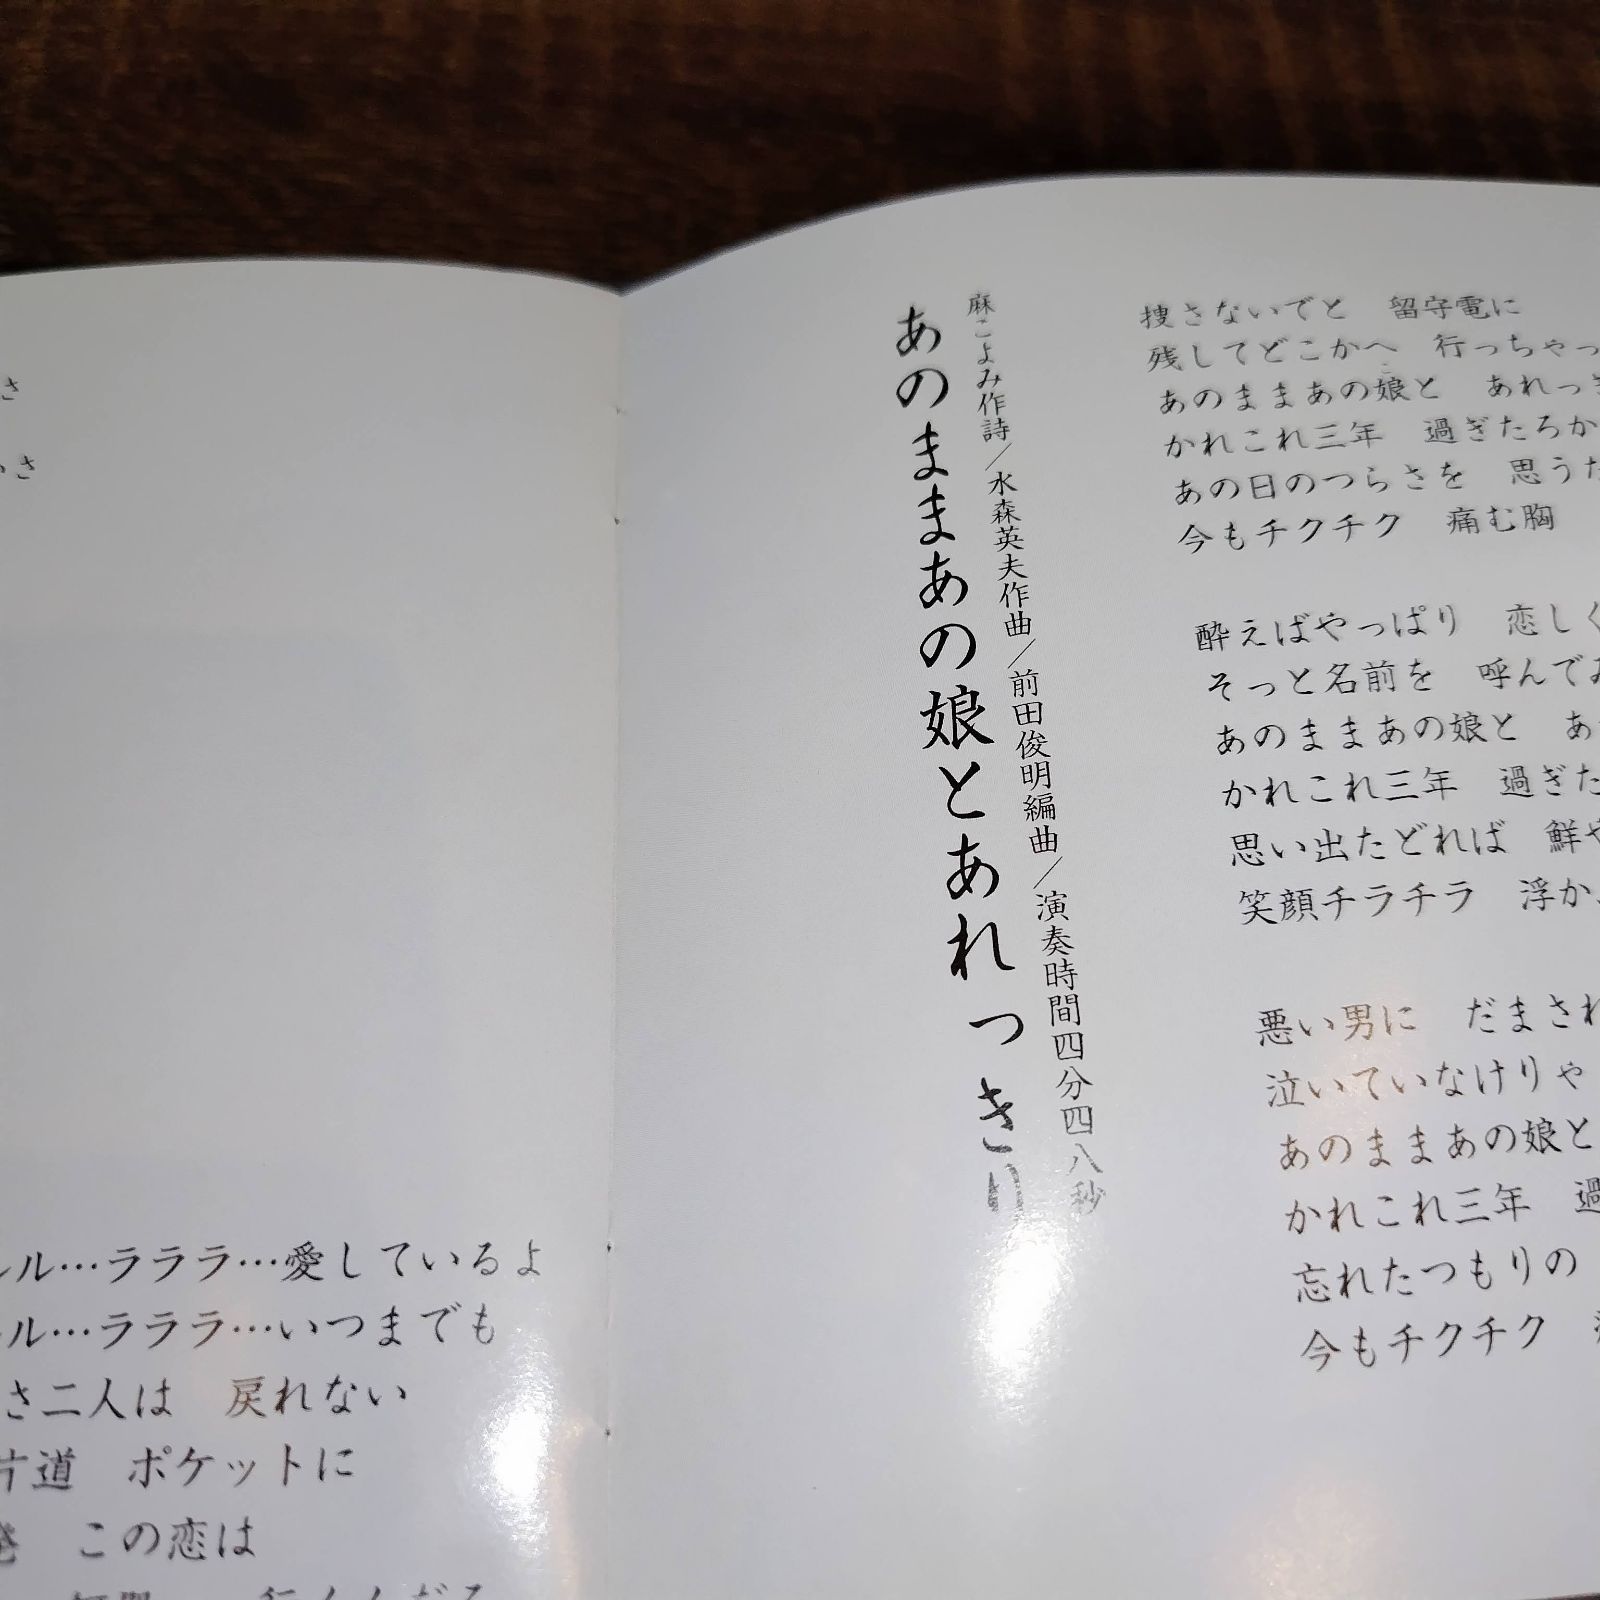 さ
さ
ルル…ラララ…愛しているよ
ル…ラララ…いつまでも
さ二人は　戻れない
片道　ポケットに
この恋は
あのままあの娘とあれっきり
麻こよみ作詩／水森英夫作曲／前田俊明編曲／演奏時間四分四八秒
捜さないでと　留守電に
残してどこかへ　行っちゃっ
あのままあの娘と　あれっき
かれこれ三年　過ぎたろか
あの日のつらさを　思うた
今もチクチク　痛む胸
酔えばやっぱり　恋しく
そっと名前を　呼んでみ
あのままあの娘と　あ
かれこれ三年　過ぎた
思い出たどれば　鮮や
笑顔チラチラ　浮か
悪い男に　だまされ
泣いていなけりゃ
あのままあの娘と
かれこれ三年　過
忘れたつもりの
今もチクチク